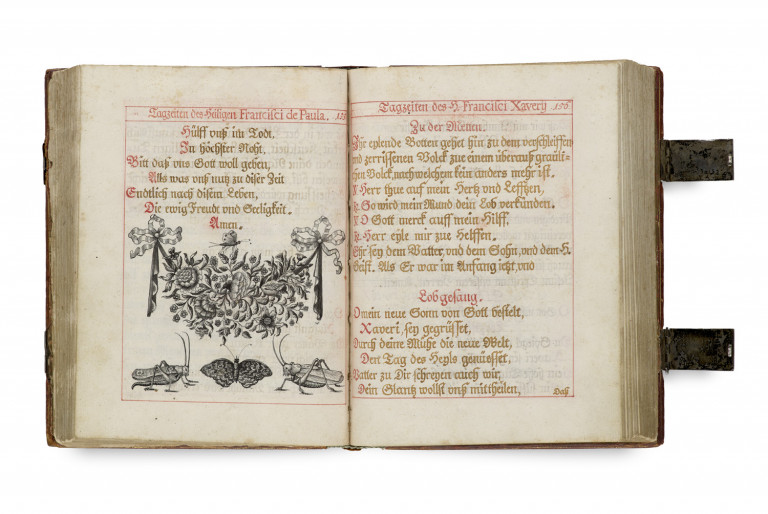 Tagzeiten des Heiligen Francisci de Paula.
Hülff vnß im Todt,
In höchster Noht,
Bitt daß vns Gott woll geben,
Alls was vnß nutz zu diser Zeit
Endtlich nach disem Leben,
Die ewig Freudt vnd Seeligkeit.
Amen.
Tagzeiten des H. Francisci Xavery 156
Zu der Metten.
Ihr eylende Botten gehet hin zu dem verschleissen
vnd zerrissenen Volck zue einem überauß greuli-
chen Volck, nach welchem kein anders mehr ist.
V Herr thue auf mein Hertz vnd Lefftzen,
R. So wird mein Mund dein Lob verkünden.
V O Gott merck auff mein Hilff.
R. Herr eyle mir zue Helffen.
Ehr sey dem Vatter, vnd dem Sohn, vnd dem H.
Geist. Als Er war im Anfang ietzt, vnd
Lobgesang.
O mein neue Sonn von Gott bestelt,
Xaveri, sey gegrüsset,
Durch deine Mühe die neue Welt,
Den Tag des Heyls geniesset,
Vatter zu Dir schreyen auch wir,
Dein Glantz wollst vnß mittheilen,
Daß